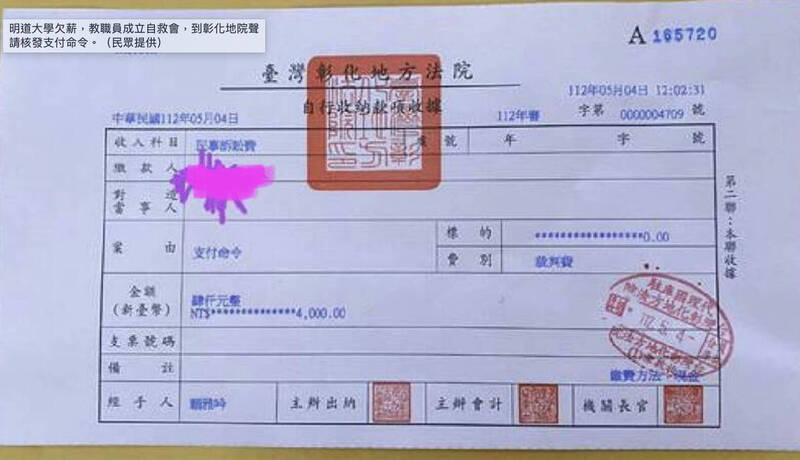 明道大學欠薪，教職員成立自救會，到彰化地院聲
請核發支付命令。（民眾提供）
A 165720
臺灣彰化地方法院
112年05月04日 12:02:31
自行收納款項收據
中華民國112年05月04日
112年審 字第 0000004709 號
收入科目 民事訴訟費 號 年 字 號
繳款人
對造
當事人
案由 支付命令
標的 *****************0.00
費別 裁判費
金額
(新臺幣)
肆仟元整
NT$***************4,000.00
支票號碼
備註 繳費方法：現金
經手人 主辦出納 主辦會計 機關長官
第二聯：本聯收據